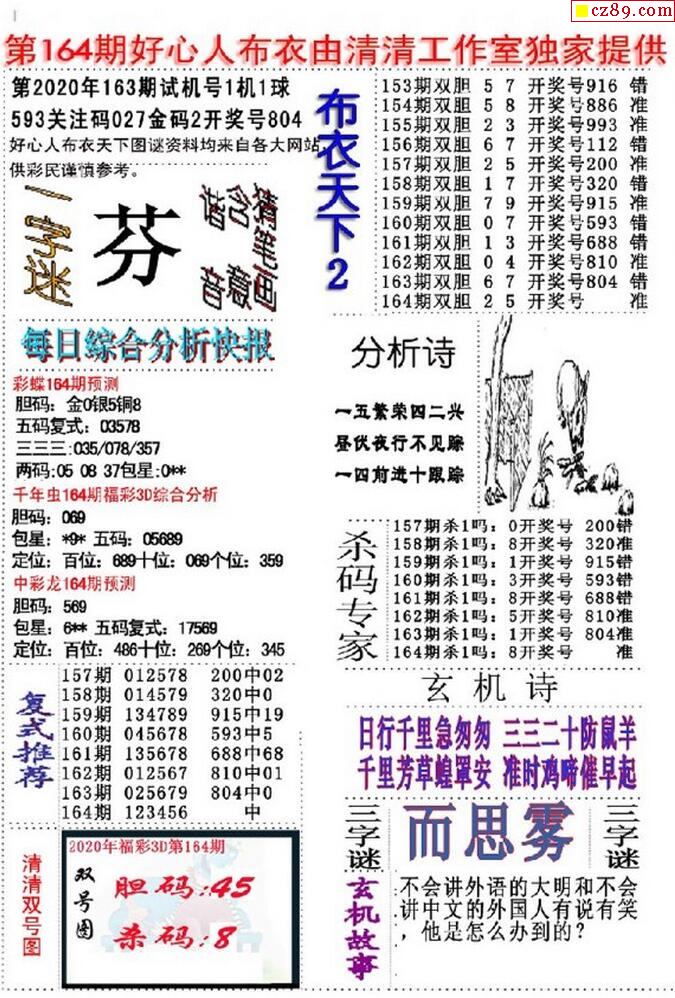 cz89.com
第164期好心人布衣由清清工作室独家提供
第2020年163期试机号1机1球
593关注码027金码2开奖号804
好心人布衣天下图谜资料均来自各大网站,
供彩民谨慎参考。
一字迷
芬
猜笔画
含意
谐音
布衣天下2
153期双胆 5 7 开奖号916 错
154期双胆 5 8 开奖号886 准
155期双胆 2 3 开奖号993 准
156期双胆 6 7 开奖号112 错
157期双胆 2 5 开奖号200 准
158期双胆 1 7 开奖号320 错
159期双胆 7 9 开奖号915 准
160期双胆 0 7 开奖号593 错
161期双胆 1 3 开奖号688 错
162期双胆 0 4 开奖号810 准
163期双胆 6 7 开奖号804 错
164期双胆 2 5 开奖号 准
每日综合分析快报
彩蝶164期预测
胆码：金0银5铜8
五码复式：03578
三三三:035/078/357
两码:05 08 37包星:0**
千年虫164期福彩3D综合分析
胆码：069
包星：*9* 五码：05689
定位：百位：689十位：069个位：359
中彩龙164期预测
胆码：569
包星：6** 五码复式：17569
定位：百位：486十位：269个位：345
分析诗
一五繁荣四二兴
昼伏夜行不见踪
一四前进十跟踪
杀码专家
157期杀1吗：0开奖号 200错
158期杀1吗：8开奖号 320准
159期杀1吗：1开奖号 915错
160期杀1吗：3开奖号 593错
161期杀1吗：8开奖号 688错
162期杀1吗：5开奖号 810准
163期杀1吗：1开奖号 804准
164期杀1吗：8开奖号 准
复式推荐
157期 012578 200中02
158期 014579 320中0
159期 134789 915中19
160期 045678 593中5
161期 135678 688中68
162期 012567 810中01
163期 025679 804中0
164期 123456 中
玄机诗
日行千里急匆匆 三三二十防鼠羊
千里芳草蝗罩安 准时鸡啼催早起
三字谜
而思雾
三字谜
清清双号图
2020年福彩3D第164期
双号图
胆码:45
杀码:8
玄机故事
不会讲外语的大明和不会
讲中文的外国人有说有笑
，他是怎么办到的?